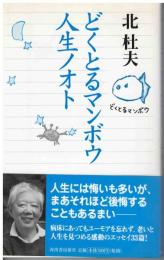 北杜夫
どくとるマンボウ
人生ノオト
どくとるマンボウ
人生には悔いも多いが、
まあそれほど後悔する
こともあるまい——
病床にあってもユーモアを忘れず、老いと
人生を見つめる感動のエッセイ33篇!